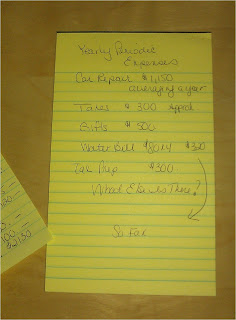 Yearly Periodic
Expenses
Car Repair $1,150
average a year
Taxes $ 300 approx
Gifts $ 500
Water Bill $80x4 $320
Tax Prep $300
What Else Is There?
So Far
100
$2,150